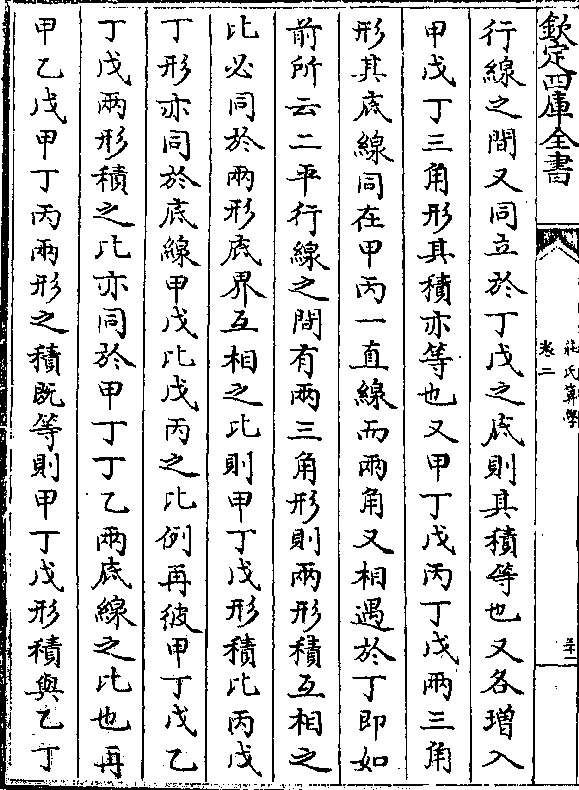 欽定四庫全書
莊氏算學
卷二
行線之間又同立於丁戊之底則其積等也又各增入
甲戊丁三角形其積亦等也又甲丁戊丙丁戊兩三角
形其底線同在甲丙一直線而兩角又相遇於丁即如
前所云二平行線之間有兩三角形則兩形積互相之
比必同於兩形底界互相之比則甲丁戊形積比丙戊
丁形亦同於底線甲戊比戊丙之比例再彼甲丁戊乙
丁戊兩形積之比亦同於甲丁丁乙兩底線之比也再
甲乙戊甲丁丙兩形之積既等則甲丁戊形積與乙丁